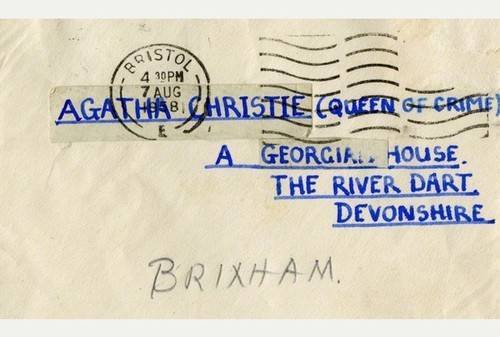 BRISTOL
4 30PM
7 AUG
1958
E
AGATHA CHRISTIE (QUEEN OF CRIME)
A GEORGIAN HOUSE.
THE RIVER DART.
DEVONSHIRE.
BRIXHAM.